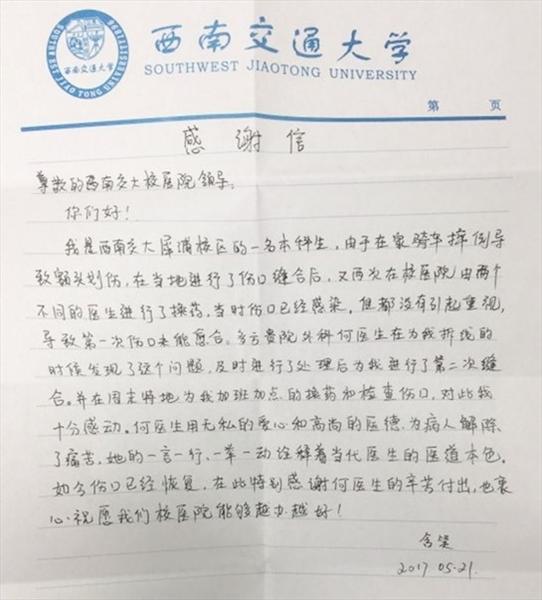 西南交通大学
SOUTHWEST JIAOTONG UNIVERSITY
第 页
感谢信
尊敬的西南交大校医院领导:
你们好!
我是西南交大犀浦校区的一名本科生,由于在家骑车摔倒导
致额头划伤,在当地进行了伤口缝合后,又两次在校医院由两个
不同的医生进行了换药,当时伤口已经感染。但都没有引起重视,
导致第一次伤口未能愈合。多亏贵院外科何医生在为我拆线的
时候发现了这个问题,及时进行了处理后为我进行了第二次缝
合。并在周末特地为我加班加点的换药和检查伤口,对此我
十分感动。何医生用无私的爱心和高尚的医德,为病人解除
了痛苦,她的一言一行、一举一动诠释着当代医生的医道本色。
如今伤口已经恢复,在此特别感谢何医生的辛苦付出,也衷
心祝愿我们校医院能够越办越好!
含笑
2017.05.21.